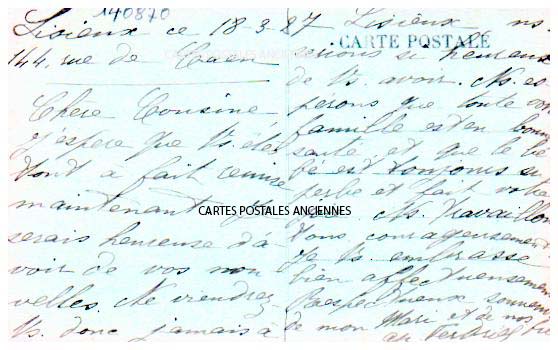 140870
Lisieux ce 18-3-87
144, rue de Caen
Chère Cousine
J'espère que Vs êtes
tout à fait remise
maintenant
serais heureuse d'a
voir de vos nou
velles. Ne viendrez
Vs. donc jamais à
Lisieux ns.
CARTE POSTALE
serions si heureux
de Vs avoir. Ns es
pérons que toute votre
famille est en bonne
santé et que le bé
bé est toujours si
et fait votre
Ns. travaillons
tous courageusement
Je Vs. embrasse
bien affectueusement
Respectueux souvenirs
de mon Mari et de nos
CARTES POSTALES ANCIENNES